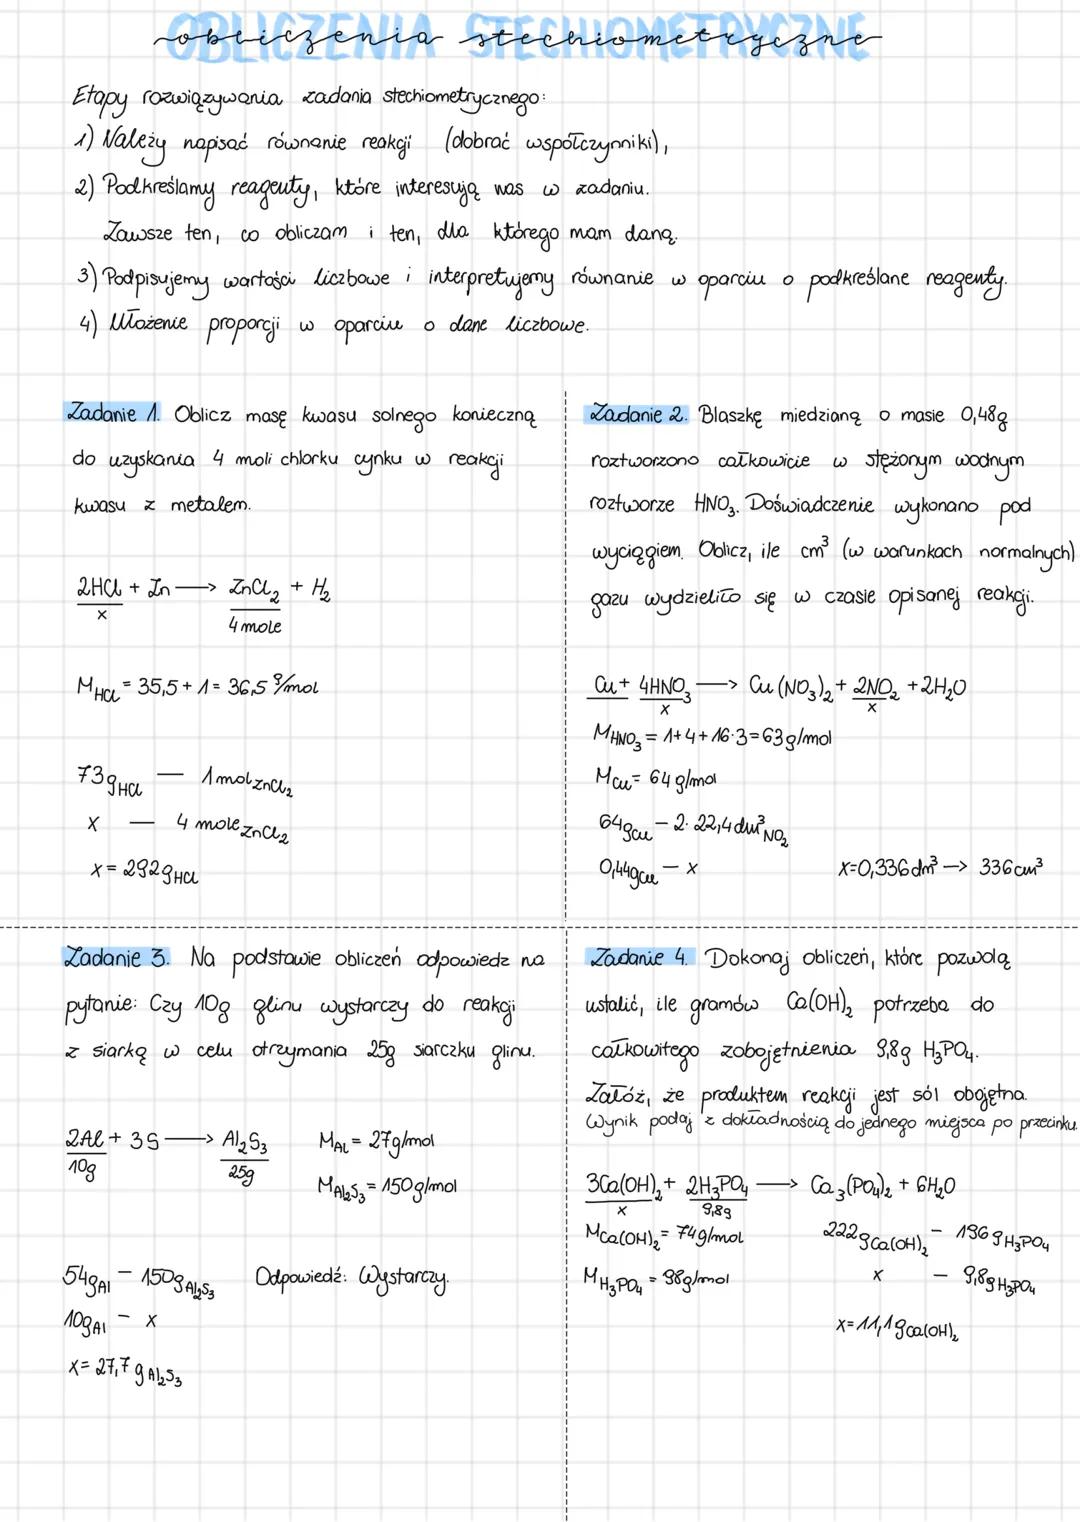 OBLICZENIA STECHIOMETRYCZNE
obliczenia stechiometryczne
Etapy rozwiązywania zadania stechiometrycznego:
1) Należy napisać równanie reakcji (dobrać współczynniki),
2) Podkreślamy reagenty, które interesują nas w zadaniu.
Zawsze ten, co obliczam i ten, dla którego mam daną.
3) Podpisujemy wartości liczbowe i interpretujemy równanie w oparciu o podkreślane reagenty.
4) Ułożenie proporcji w oparciu o dane liczbowe.
Zadanie 1. Oblicz masę kwasu solnego konieczną
do uzyskania 4 moli chlorku cynku w reakcji
kwasu z metalem.
2HCl + Zn → ZnCl₂ + H₂
x 4 mole
M HCl = 35,5 + 1 = 36,5 g/mol
73g HCl — 1 mol ZnCl₂
x — 4 mole ZnCl₂
x = 292g HCl
Zadanie 2. Blaszkę miedzianą o masie 0,48g
roztworzono całkowicie w stężonym wodnym
roztworze HNO₃. Doświadczenie wykonano pod
wyciągiem. Oblicz, ile cm³ (w warunkach normalnych)
gazu wydzieliło się w czasie opisanej reakcji.
Cu + 4HNO₃ → Cu(NO₃)₂ + 2NO₂ + 2H₂O
x x
M HNO₃ = 1+4+16·3=63g/mol
M Cu = 64 g/mol
64g Cu — 2·22,4 dm³ NO₂
0,44g Cu — x x=0,336 dm³ → 336 cm³
Zadanie 3. Na podstawie obliczeń odpowiedz na
pytanie: Czy 10g glinu wystarczy do reakcji
z siarką w celu otrzymania 25g siarczku glinu.
2Al + 3S → Al₂S₃ M Al = 27g/mol
10g 25g M Al₂S₃ = 150g/mol
54g Al — 150g Al₂S₃ Odpowiedź: Wystarczy.
10g Al — x
x = 27,7 g Al₂S₃
Zadanie 4. Dokonaj obliczeń, które pozwolą
ustalić, ile gramów Ca(OH)₂ potrzeba do
całkowitego zobojętnienia 9,8g H₃PO₄.
Załóż, że produktem reakcji jest sól obojętna.
Wynik podaj z dokładnością do jednego miejsca po przecinku.
3Ca(OH)₂ + 2H₃PO₄ → Ca₃(PO₄)₂ + 6H₂O
x 9,8g
M Ca(OH)₂ = 74g/mol 222g Ca(OH)₂ — 196g H₃PO₄
M H₃PO₄ = 98g/mol x — 9,8g H₃PO₄
x = 11,1g Ca(OH)₂